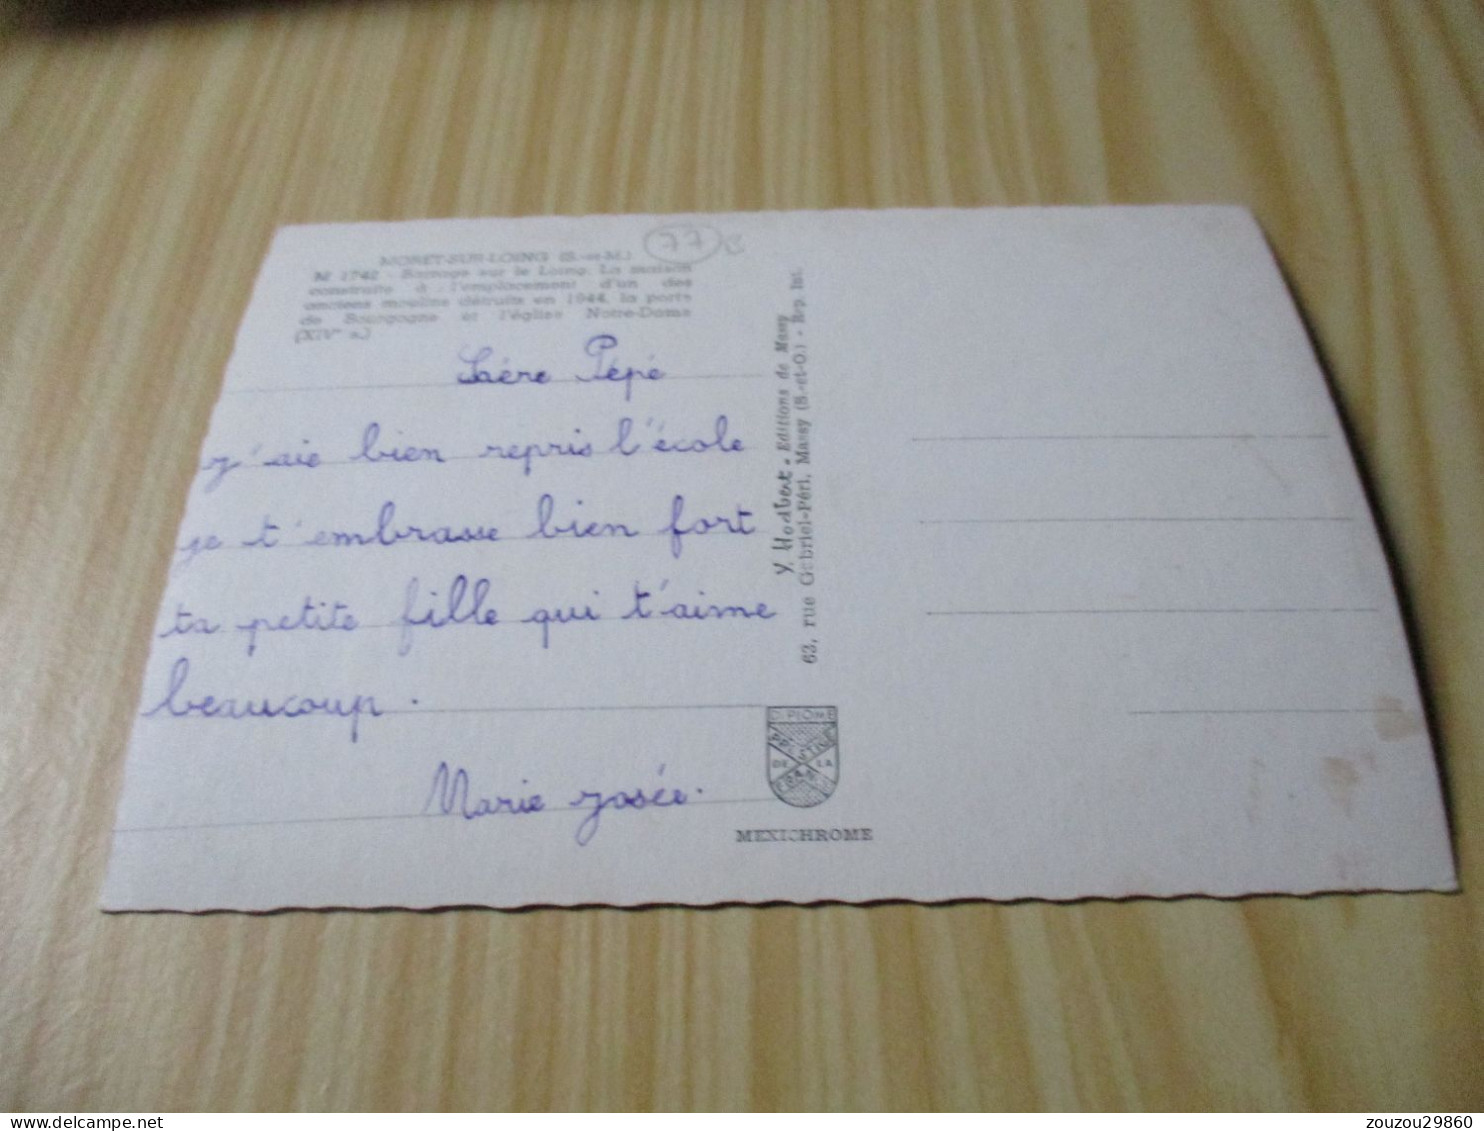 MORET-SUR-LOING (S.-et-M.)
77
M 1742 - Barrage sur le Loing. La maison
construite à l'emplacement d'un des
anciens moulins détruits en 1944, la porte
de Bourgogne et l'église Notre-Dame
(XIVe s.)
Pépé
j'aie bien repris l'école
je t'embrasse bien fort
ta petite fille qui t'aime
beaucoup.
Marie josée.
Y. Hodbert - Editions de Massy
63, rue Gabriel-Péri, Massy (S.-et-O.) - Rep. Int.
DIPLOME
PRESTIGE
DE LA
FRANCE
MEXICHROME
zouzou29860